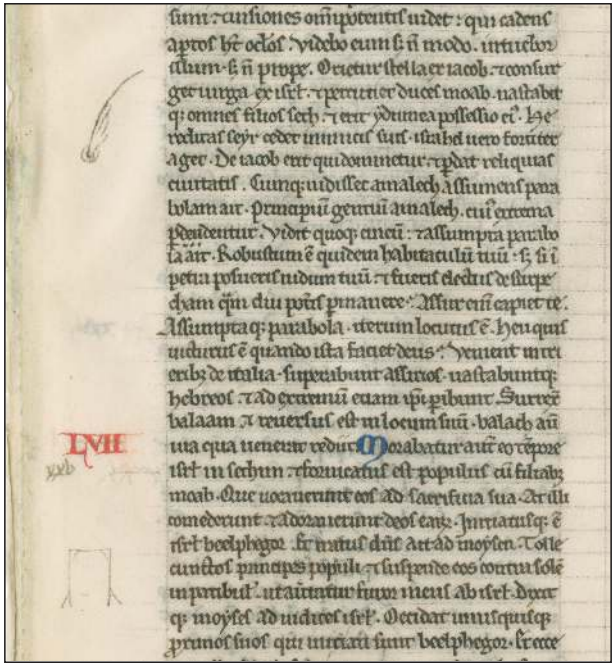 simi . ⁊ uisiones om̅ipotentis uidet : qui cadens
aptos ht̅ oclos . Videbo eum s; n̅ modo . intuebor
illum . s; n̅ prope . Orietur stella ex iacob . ⁊ consur
get uirga ex isrl̅ . ⁊ percutiet duces moab . uastabit
q; omnes filios seth . ⁊ erit ydumea possessio ei᷒ . He
reditas seyr cedet inimicis suis . israhel uero fortiter
aget . De iacob erit qui dominetur ⁊ p̲dat reliquias
ciuitatis . Cumq; uidisset amalech assumens para
bolam ait . Principiu̅ gentiu̅ amalech . cui᷒ extrema
p̲dendentur . Vidit quoq; cineu̅ : ⁊ assumpta parabo
la ait . Robustum e̅ quidem habitaculu̅ tuu̅ : s; si i̅
petra posueris nidum tuu̅ . ⁊ fueris electus de stirpe
cham qm̅diu potis p̲manere . Assur eni̅ capiet te .
Assumptaq; parabola . iterum locutus e̅ . Heu quis
uicturus e̅ quando ista faciet deus . Venient in tri
erib; de italia . superabunt assirios . uastabuntq;
hebreos . ⁊ ad extremu̅ etiam ip̅i p̲ibunt . Surrex̅
balaam ⁊ reuersus est in locum suu̅ . balach au̅
LVII uia qua uenerat rediit Morabatur aut̅ eo te̅pore
xxb isrl̅ in sethim . ⁊ fornicatus est populus cu̅ filiab;
moab . Que uocauerunt eos ad sacrificia sua . At illi
comederunt ⁊ adorauerunt deos ear̅ . Initiatusq; e̅
isrl̅ beelphegor . Et iratus dn̅s ait ad moysen . Tolle
cunctos principes populi . ⁊ suspende eos contra sole̅
in patibul̅ . ut auertatur furor meus ab isrl̅ . Dixit
q; moyses ad iudices isrl̅ . Occidat unusquisq;
proximos suos qui initiati sunt beelphegor . Et ecce